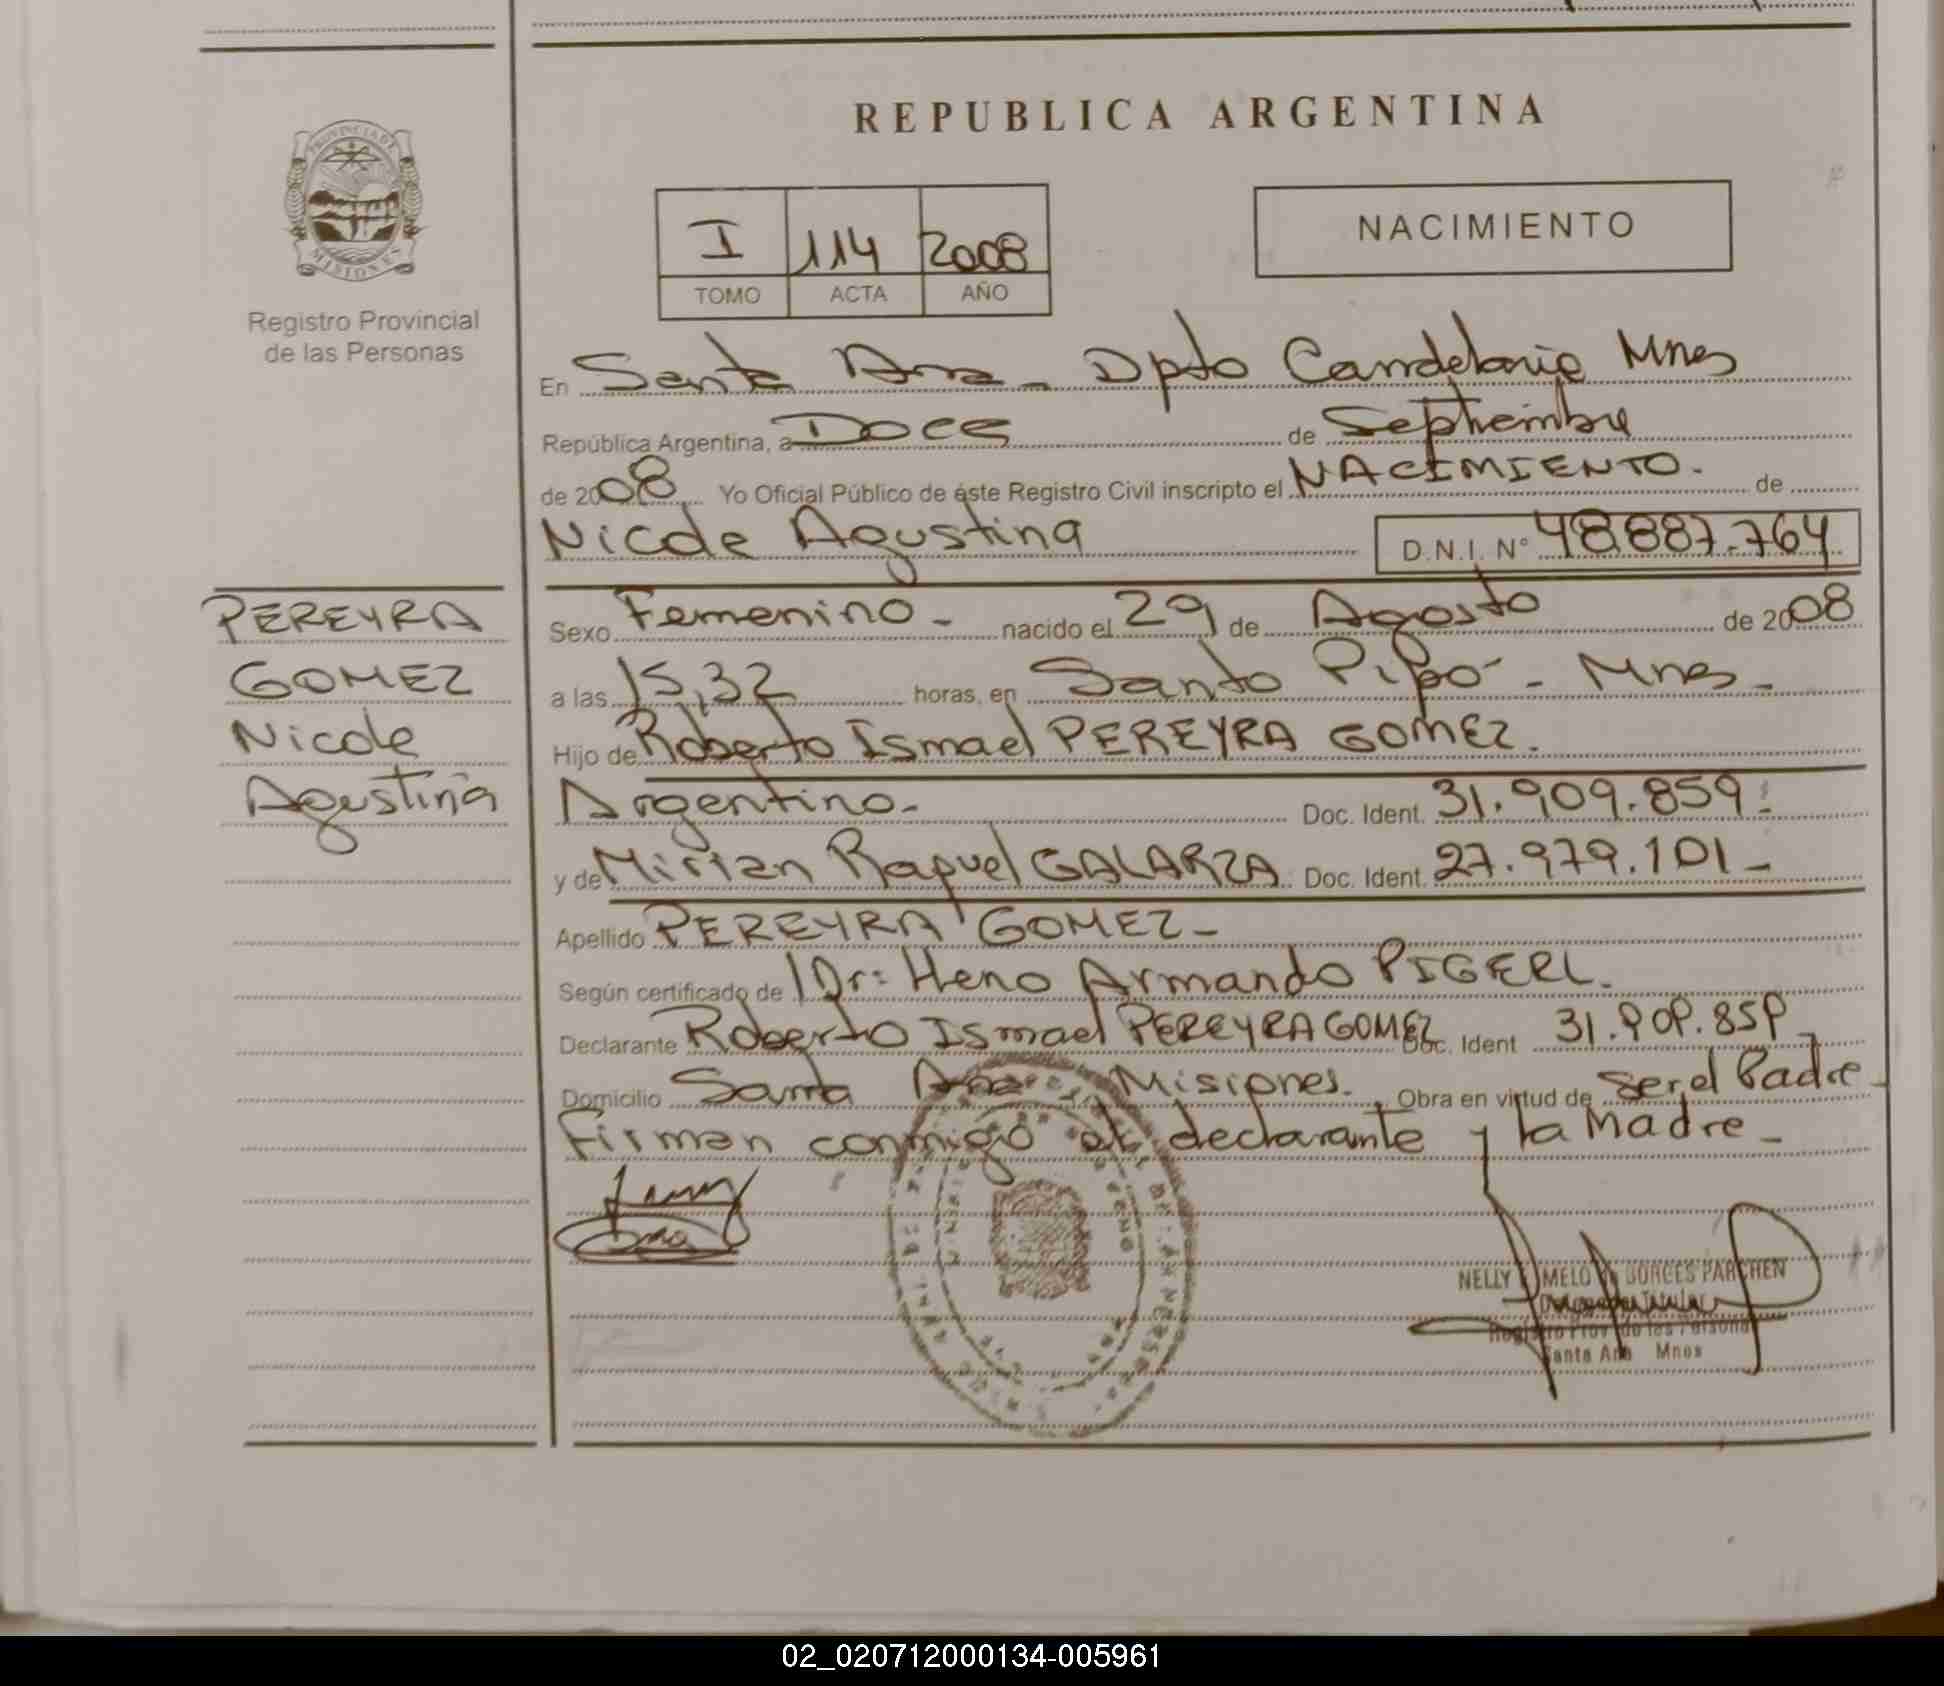 REPUBLICA ARGENTINA
PROVINCIA DE
MISIONES
Registro Provincial
de las Personas
I 114 2008
TOMO ACTA AÑO
NACIMIENTO
En Santa Ana - Dpto Candelaria Mnes
República Argentina, a Doce de Septiembre
de 2008 Yo Oficial Público de éste Registro Civil inscripto el NACIMIENTO. de
Nicole Agustina D.N.I. N° 48.887.764
PEREYRA
GOMEZ
Nicole
Agustina
Sexo Femenino - nacido el 29 de Agosto de 2008
a las 15,32 horas, en Santo Pipó - Mnes -
Hijo de Roberto Ismael PEREYRA GOMEZ.
Argentino - Doc. Ident. 31.909.859 -
y de Mirian Raquel GALARZA Doc. Ident. 27.979.101 -
Apellido PEREYRA GOMEZ -
Según certificado de Dr: Heno Armando PIGERL.
Declarante Roberto Ismael PEREYRA GOMEZ Doc. Ident 31.909.859 -
Domicilio Santa Ana - Misiones. Obra en virtud de ser el Padre -
Firman conmigo el declarante y la Madre -
NELLY MELO de BORGES PARCHEN
Titular
Registro Prov de las Personas
Santa Ana Mnes
02_020712000134-005961